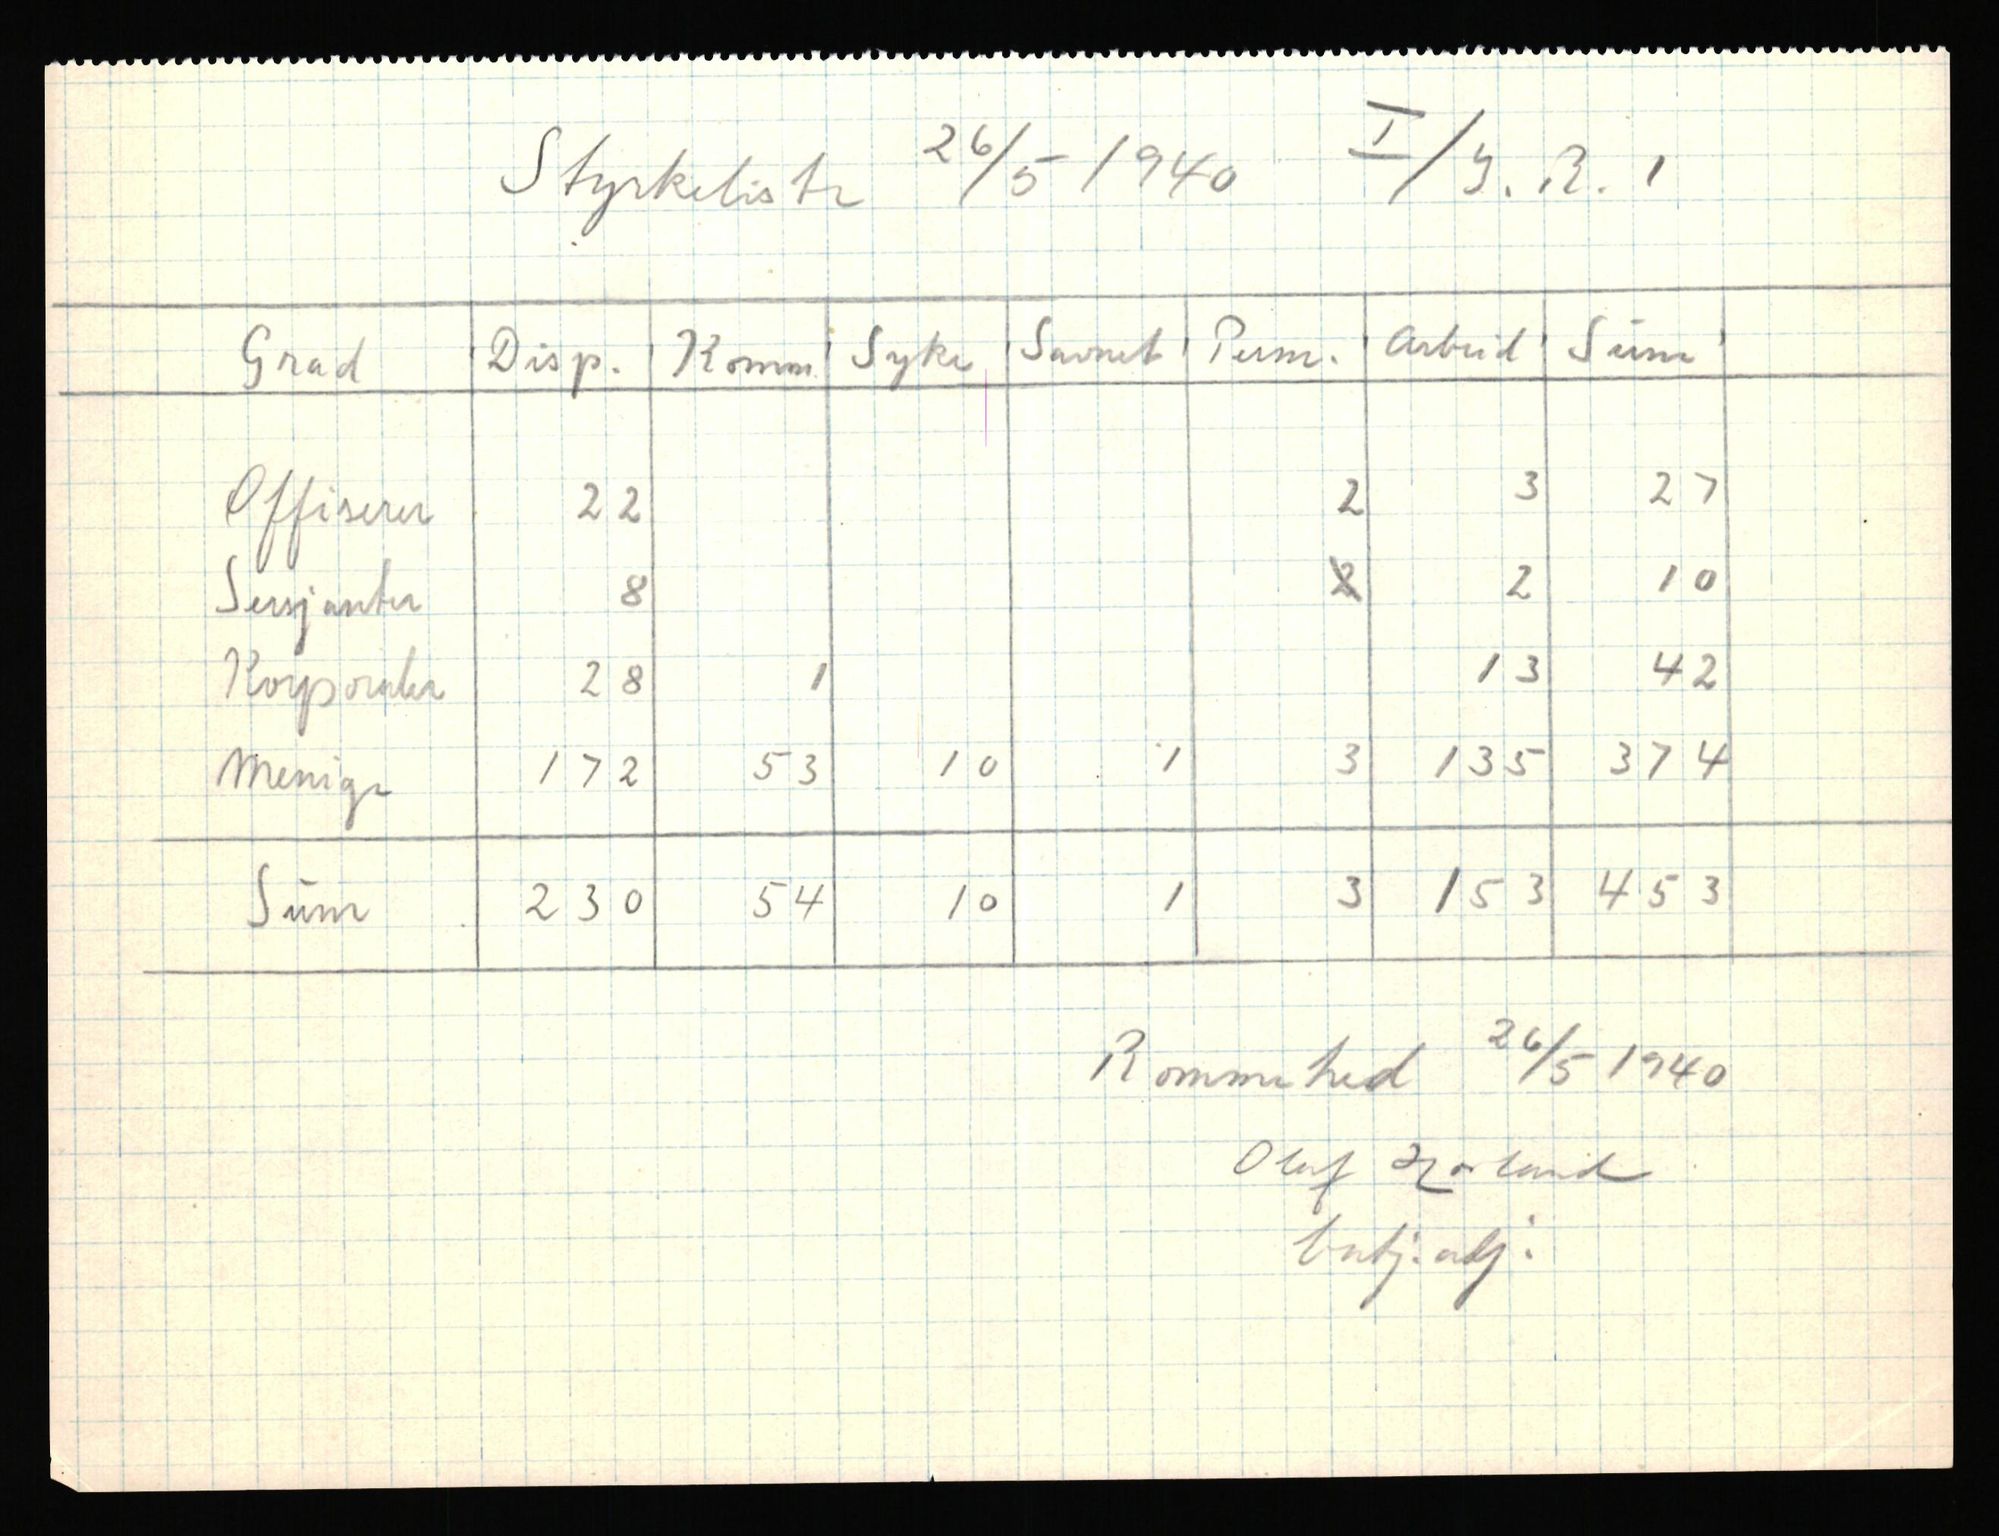 Styrkeliste 26/5 1940 I/I.R. 1
Grad Disp. Komm. Syke Savnet Perm. Arbeid Sum
Offiserer 22 2 3 27
Sersjanter 8 2 2 10
Korporaler 28 1 13 42
Menige 172 53 10 1 3 135 374
Sum 230 54 10 1 3 153 453
Rommehed 26/5 1940
Olaf
batj. adj.